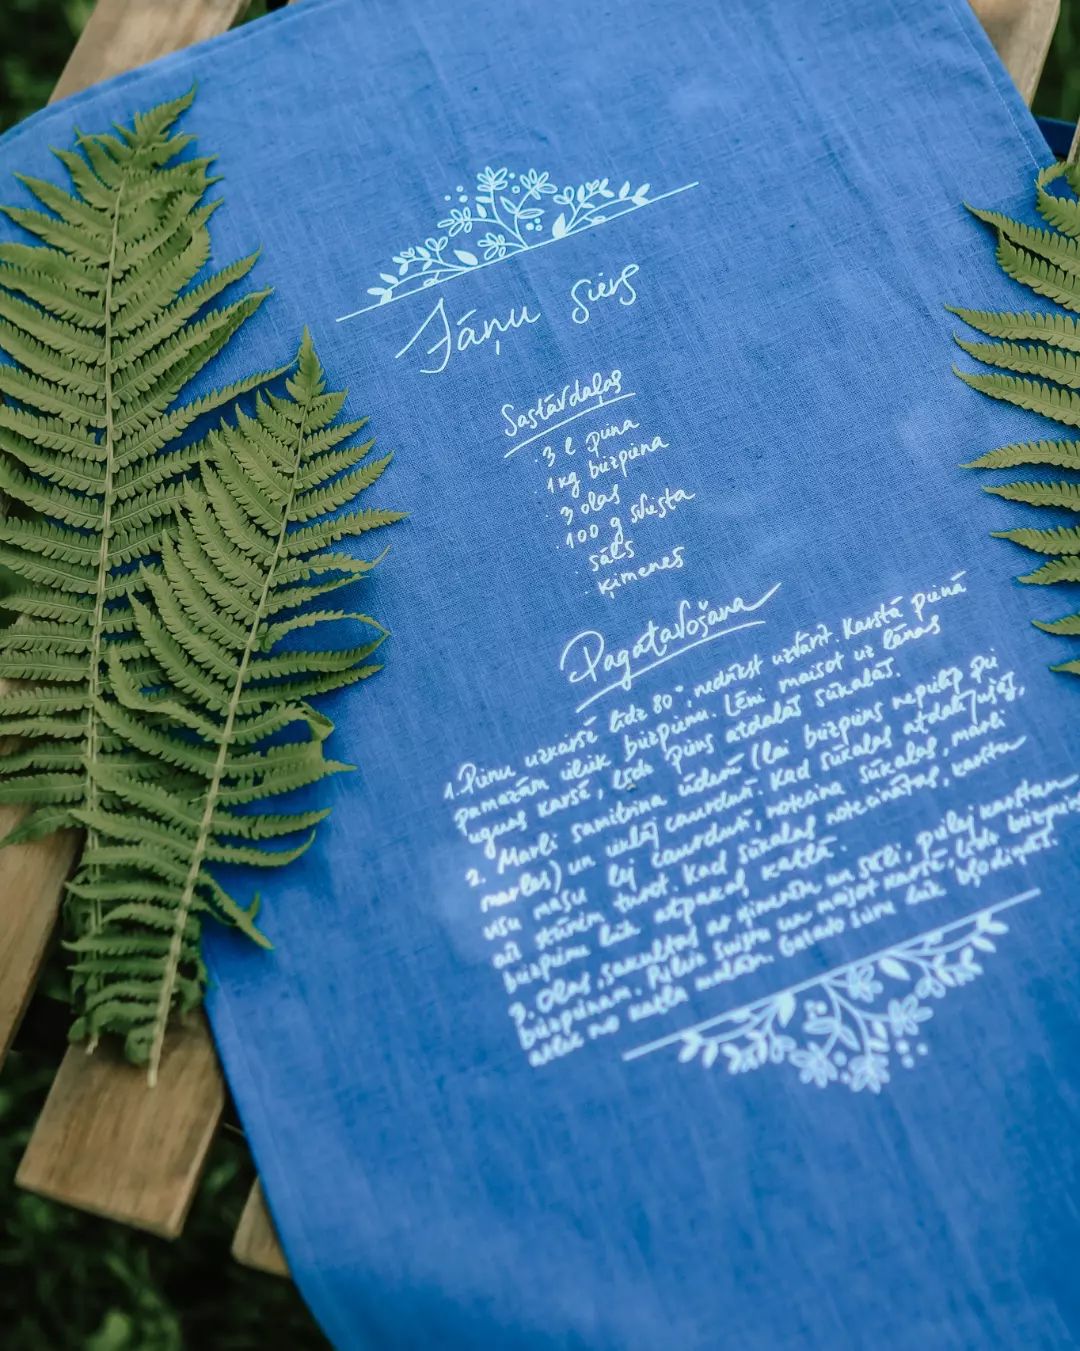 Jāņu siers
Sastāvdaļas
· 3 l piena
· 1 kg biezpiena
· 3 olas
· 100 g sviesta
· sāls
· ķimenes
Pagatavošana
1. Pienu uzkarsē līdz 80°, nedrīkst uzvārīt. Karstā pienā
pamazām ieliek biezpienu. Lēni maisot uz lēnas
uguns karsē, līdz piens atdalās sūkalās.
2. Marli samitrina ūdenī (lai biezpiens nepielīp pie
marles) un ieklāj caurdurī. Kad sūkalas atdalījušās,
visu masu lej caurdurī, notecina sūkalas, marli
aiz stūriem turot. Kad sūkalas notecinātas, karstu
biezpienu liek atpakaļ katlā.
3. Olas sakultas ar ķimenēm un sāli, pielej karstam
biezpienam. Pieliek sviestu un maisot karsē, līdz biezpiens
atlec no katla malām. Gatavo sieru liek bļodiņās.